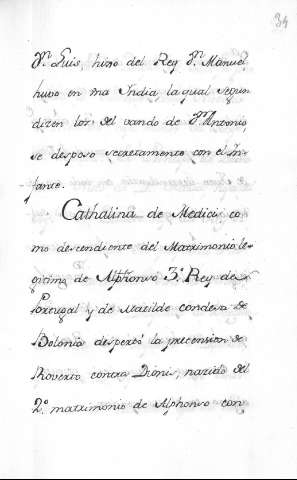 34
Dn. Luis, hixo del Rey Dn. Manuel,
huvo en una India, la qual segun
dizen los del vando de Dn. Antonio,
se desposo secretamente con el In-
fante.
Cathalina de Medicis co-
mo descendiente del Matrimonio le-
gitimo de Alphonso 3º Rey de
Portugal y de Matilde condesa de
Bolonia desperto la pretension de
Roverto contra Dionis, nazido del
2º matrimonio de Alphonso con